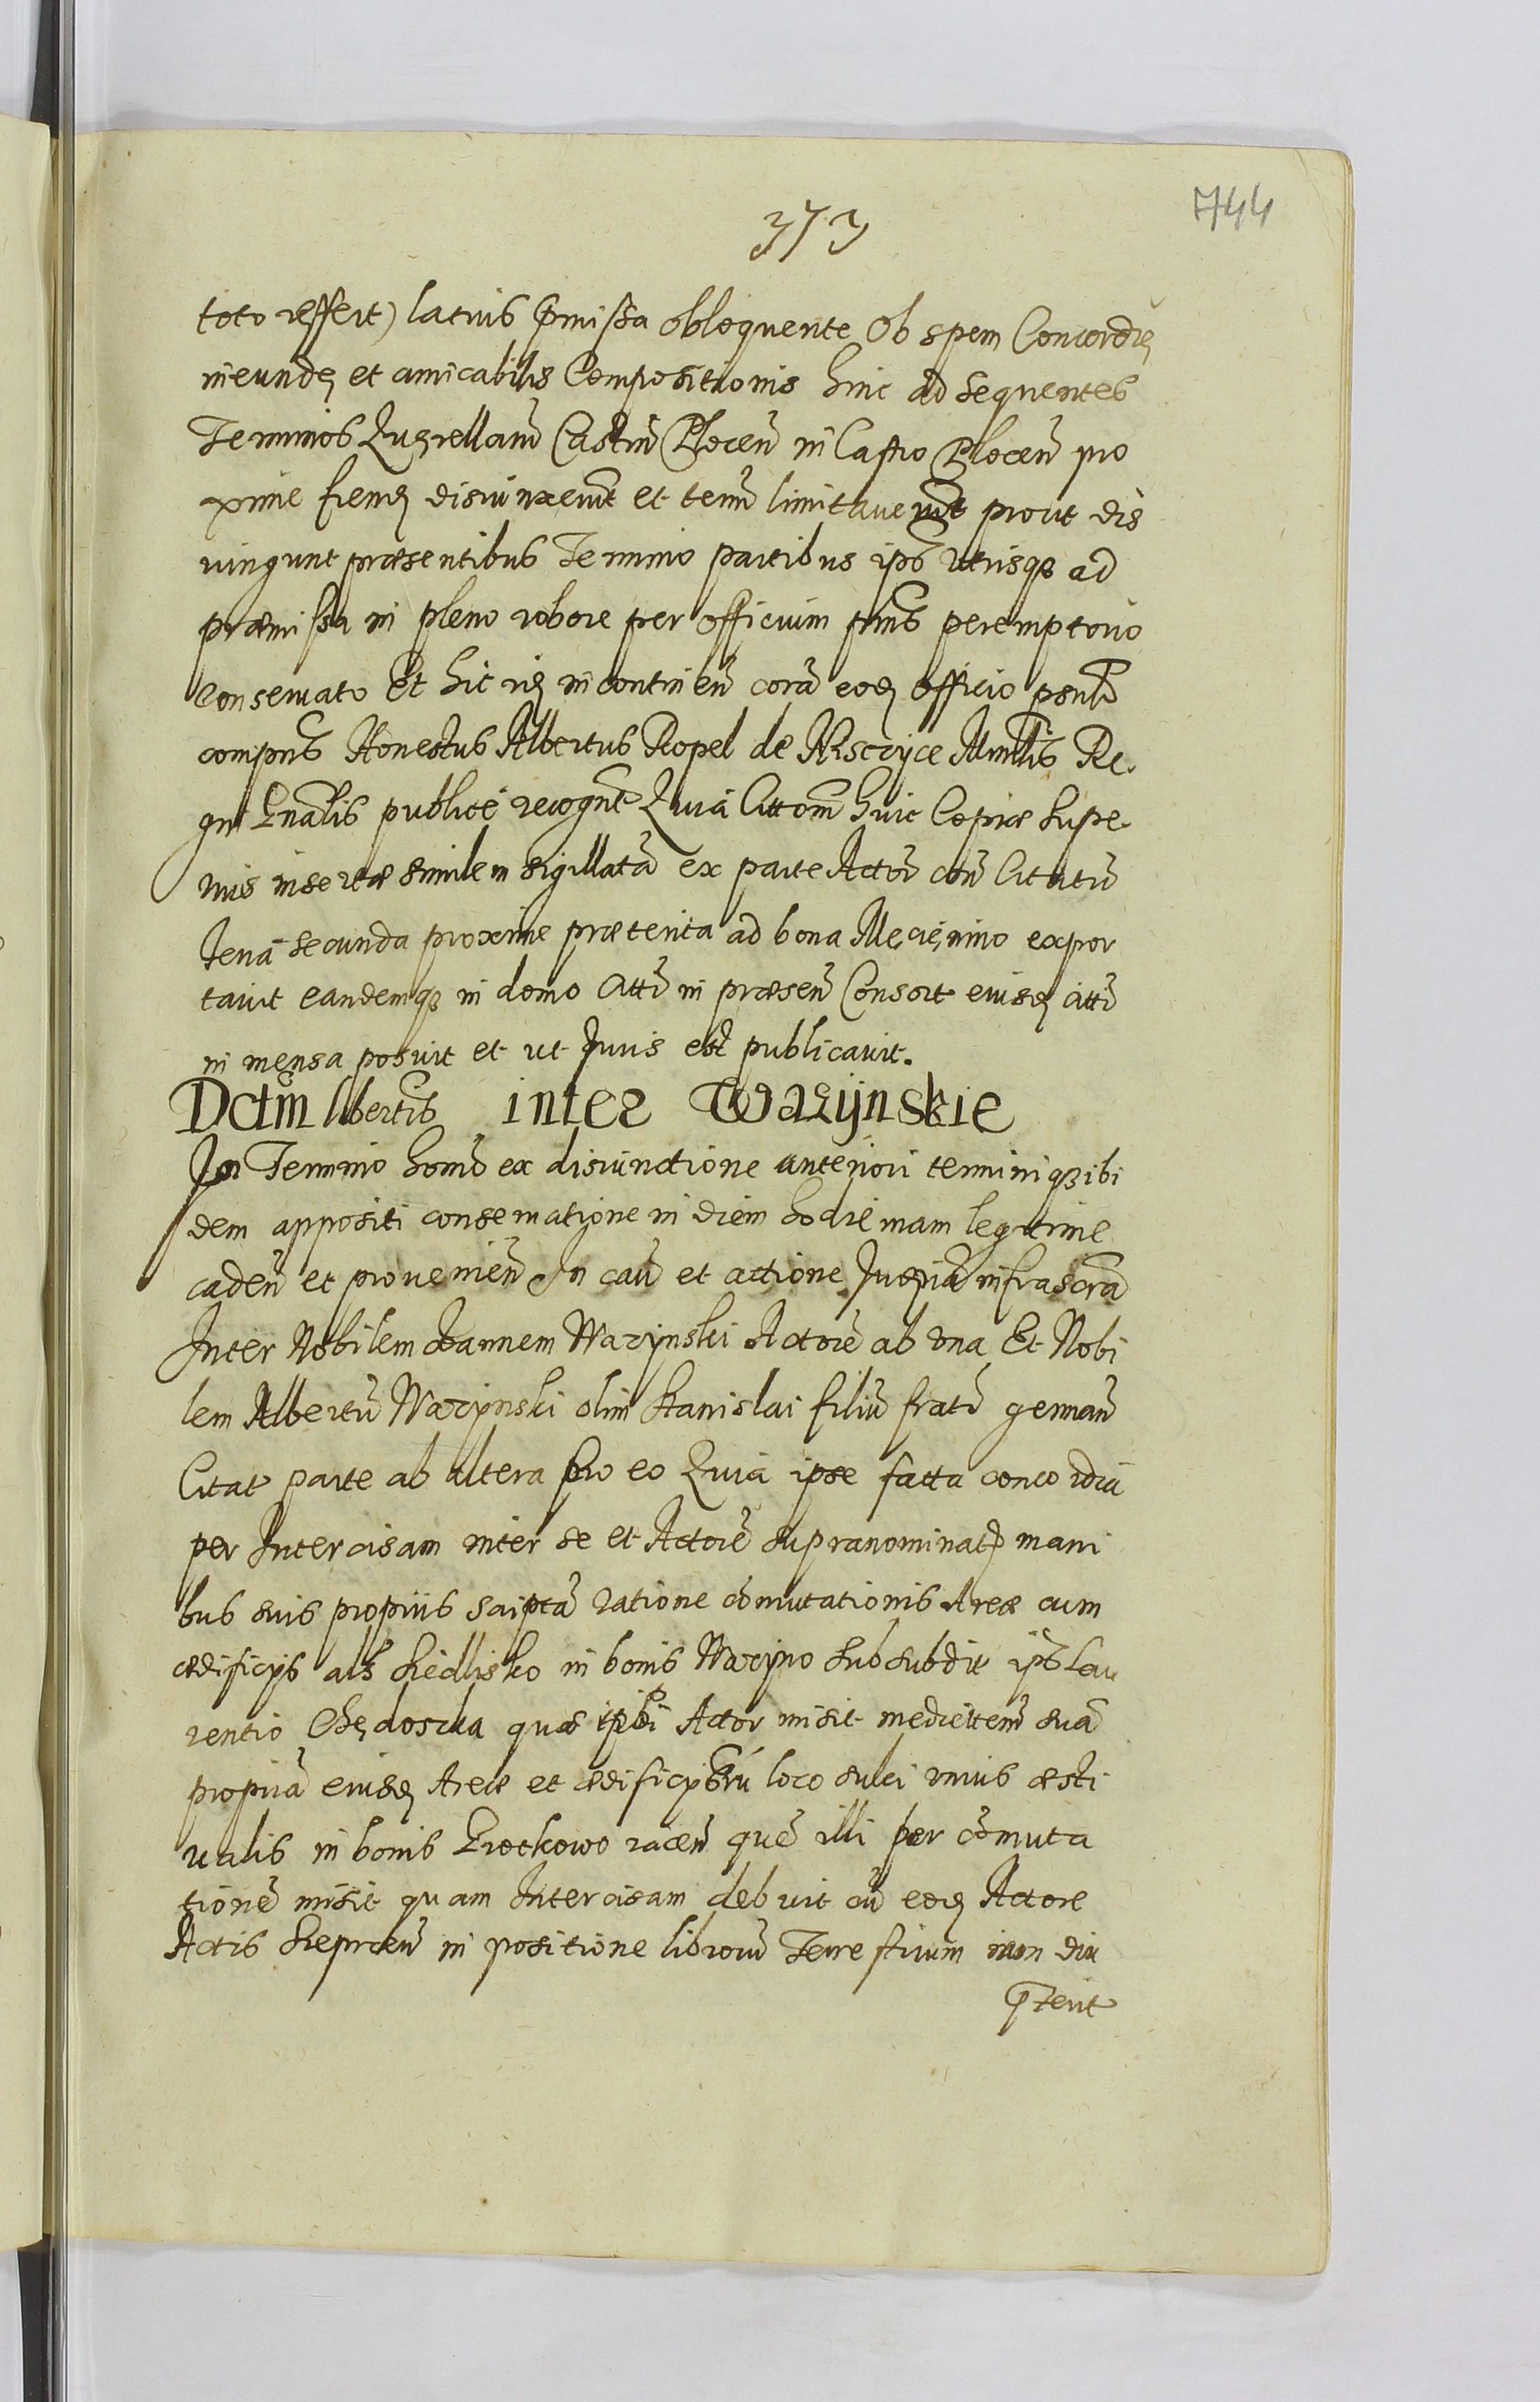 744
373
toto reffert) latius p̃missa obloquente Ob spem Concordię
ineundę et amicabilis Compositionis hinc ad sequentes
Terminos Querellarũ Castrũ Plocen̄ in Castro Plocen̄ pro
xime fiendę disiunxerũt et term̃ limitauerũt prout dis
iungunt præsentibus Termino partibus ipš vtrisqȝ ad
præmissa in pleno robore per officium prñs peremptorio
Conseruato Et hic rę incontinen̄ corã eodę officio pšnlr
comprñs Honestus Albertus Ropel de Minrlis Re-
gni Gñalis publice recognt Quia Citt̃om huic Copiæ Supe-
rius insertæ similem sigillatã ex parte Actor̃ con̄ Citatũ
feriã secunda proxime præterita ad bona Męcięnino expor
tauit eandemqȝ in domo Citti in præsen̄ Consort eiusdę citti
in mensa posuit et ut Juris est publicauit.
Dctm̄ libertis inter Warÿnskie
In Termino hoñd ex disiunctione anteriori terminiqȝ ibi
dem appositi conseruatione in diem hodiernam legitime
caden̄ et prouenien̄ In caũ et actione Juŕia infrascrã
Inter Nobilem Joannem Warynski Actorẽ ab vna Et Nobi
lem Albertũ Warynski olim Stanislai filiũ fratr̃ germañ
Citat parte ab altera Pro eo Quia ipse facta concordia
per Intercisam inter se et Actorẽ supranominat mani
bus suis propriis scriptã ratione cõmutationis Areæ cum
ædificijs als Siedlisko in bonis Waryno sub subdit ipš Lau
rentio quæ ipsi Actor misit medietem̄ suã
propriã eiusdę Areæ et ædificyorũ loco sulci vnius æsti
ualis in bonis Grockowo iacen̄ quẽ illi per cõmuta
tionẽ misit quam Intercisam debuit cũ eodę Actore
Actis Sieprcen̄ in positione librorũ Terrestrium non diu
p̃terit